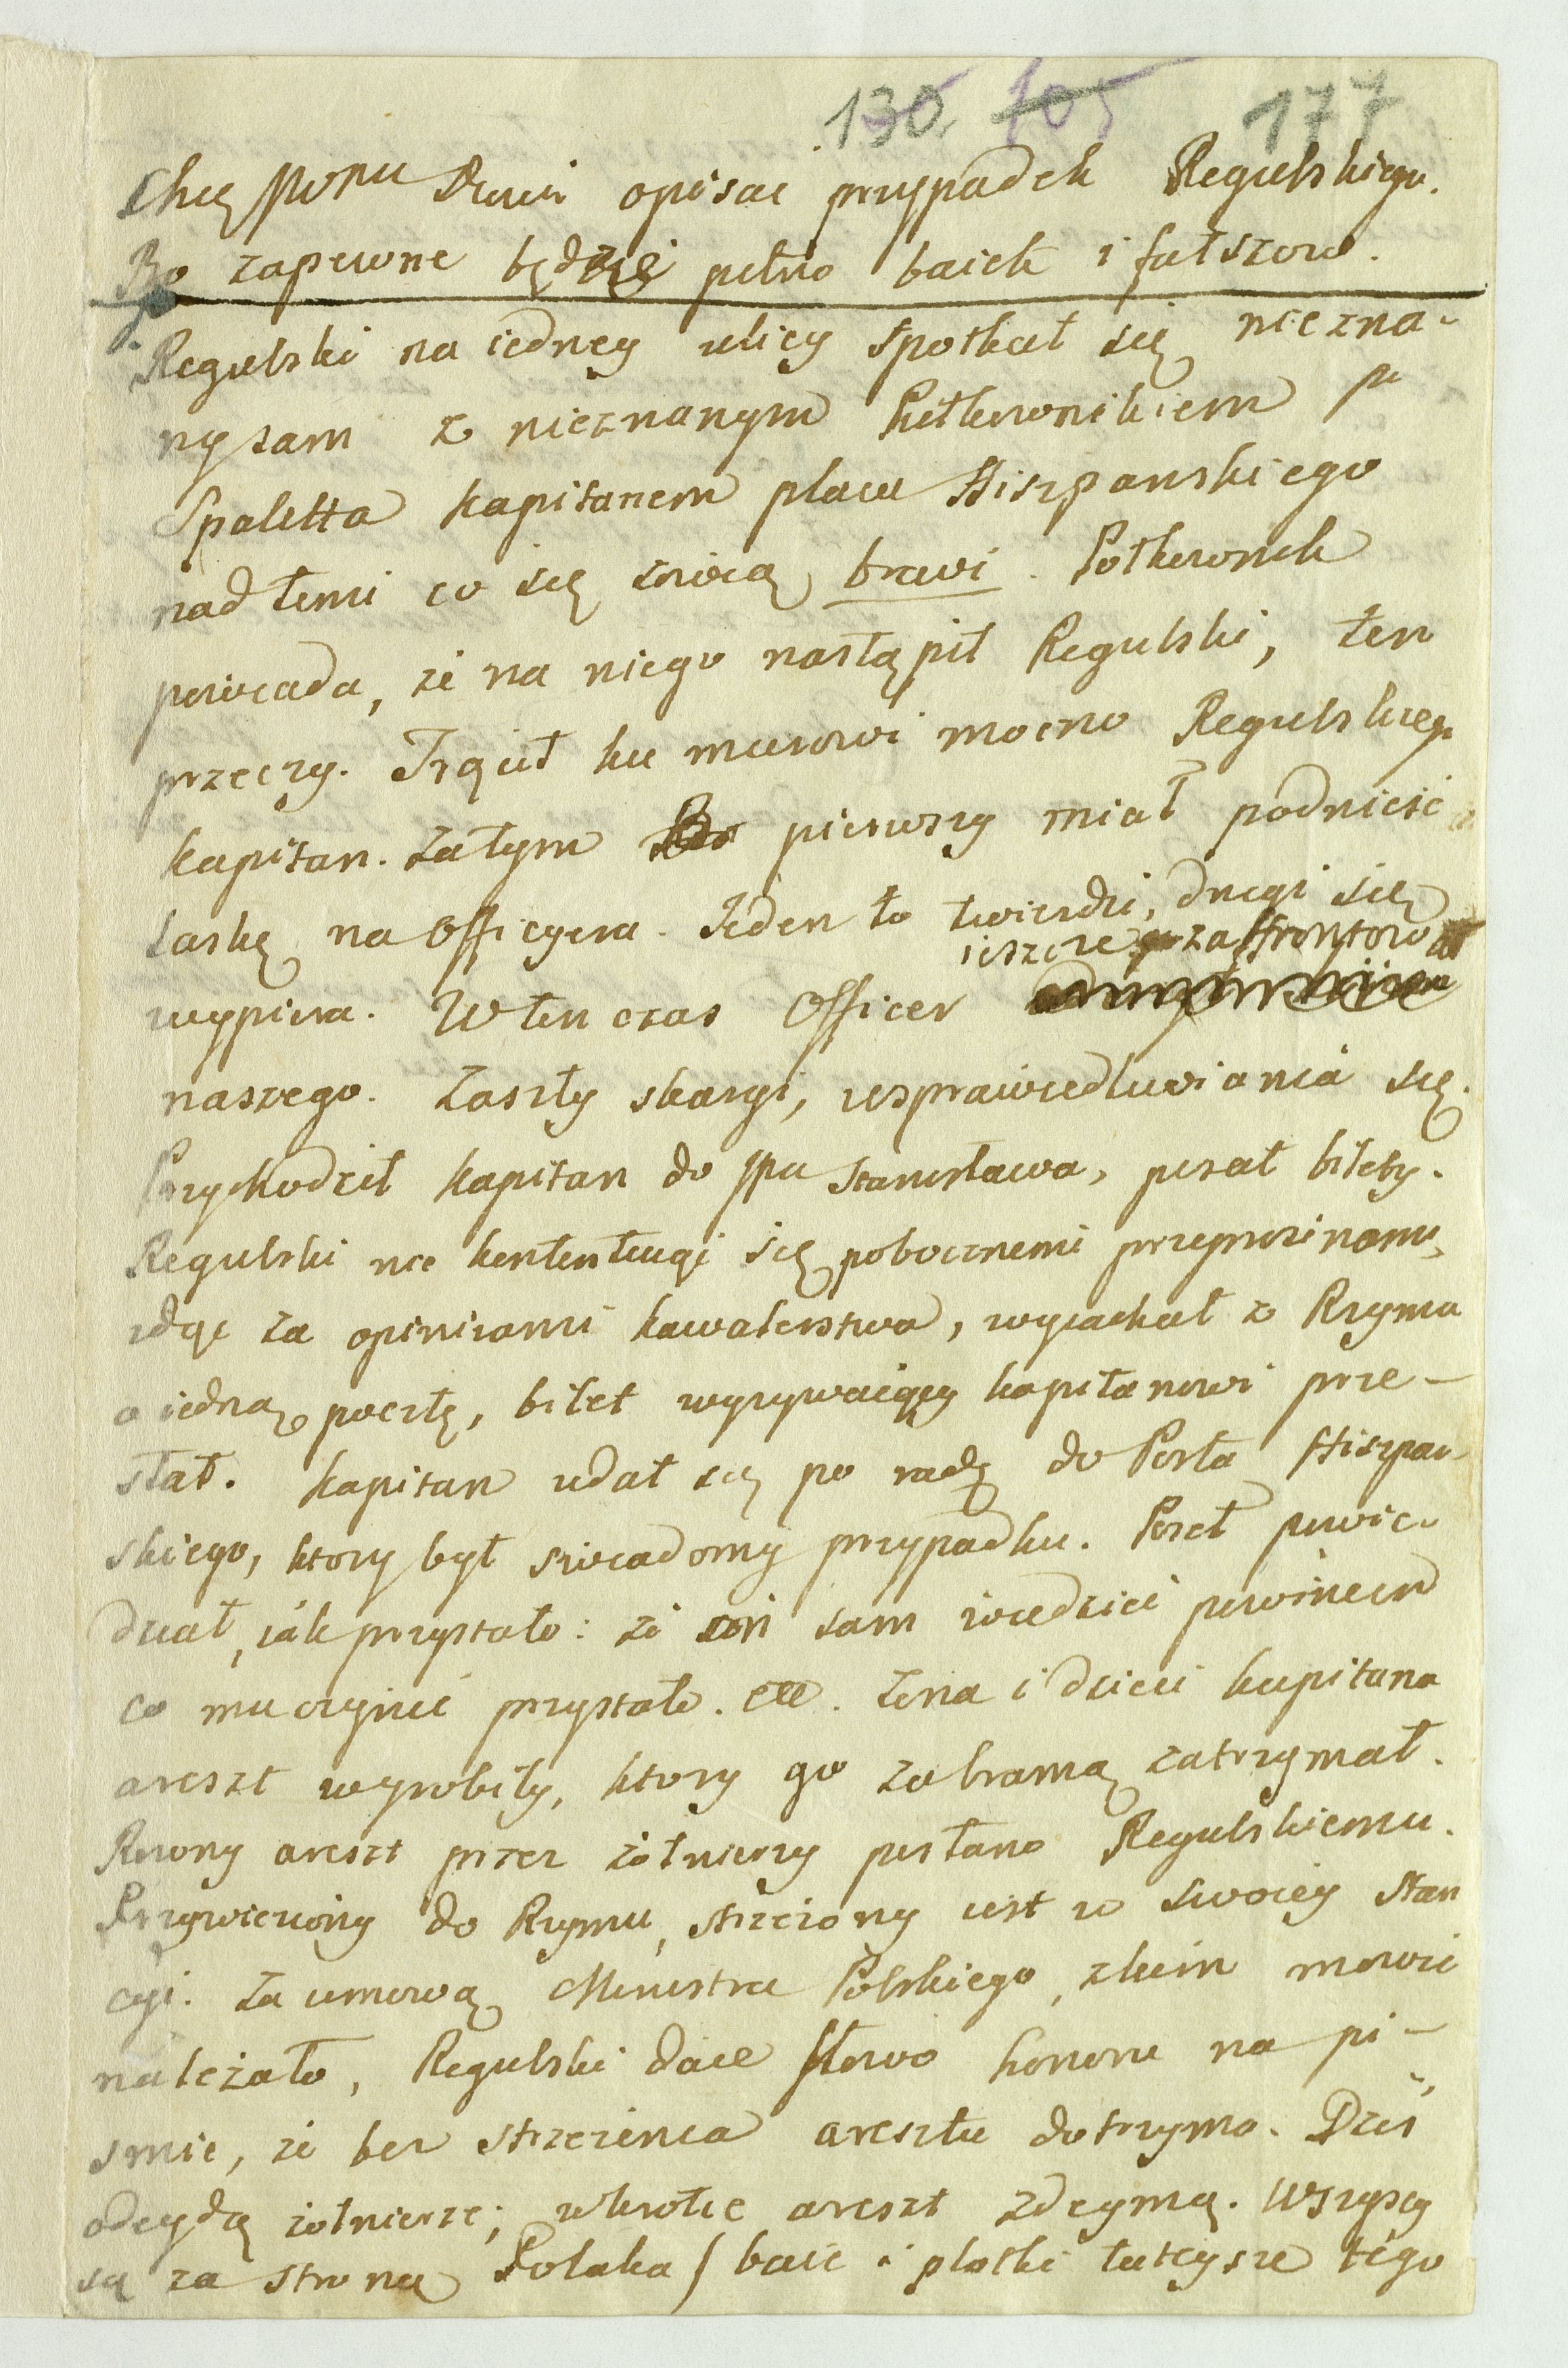 130. 105 177
Chcę JPanu Dobrui opisac przypadek Regulskiego.
Bo zapewne będzie pełno baiek i fałszow.
Regulski na iedney ulicy spotkał się niezna-
ny sam z nieznanym Pułkownikiem P
Spaletta kapitanem placu Hiszpanskiego
nad temi co się zowią bravi. Połkownik
powiada, że na niego nastąpił Regulski, ten
przeczy. Trącił ku murowi mocno Regulskiego
kapitan. Zatym pierwszy miał podnieść
laskę na Officyera. Jeden to twierdzi, drugi się
wypiera. W ten czas Officer ieszcze zaffrontował
naszego. Zaszły skargi, usprawiedliwiania się.
Przychodził kapitan do JPu Stanisława, pisał bilety.
Regulski nie kontentuiąc się pobocznemi przeprosinami,
idąc za opiniami kawalerstwa, wyiachał z Rzymu
o iedną pocztę, bilet wyzywaiący kapitanowi prze-
słał. Kapitan udał się po radę do Posła Hiszpan-
skiego, ktory był swiadomy przypadku. Poseł powie-
dział, iák przystało: że sam wiedzieć powinien
co mu czynić przystało. etc. Żona i dzieci kapitana
areszt wyrobiły, ktory go za bramą zatrzymał.
Rowny areszt przez żołnierzy posłano Regulskiemu.
Przywieziony do Rzymu, strzeżony iest w swoiey stan
cyi. Za umową Ministra Polskiego, z kim mowić
należało, Regulski daie słowo honoru na pi-
smie, że bez strzeżenia aresztu dotrzyma. Dziś
odeydą żołnierze; wkrotce areszt zdeymą. Wszyscy
są za stroną Polaka / baie i plotki tuteysze tego